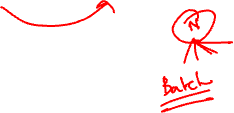 N
Batch